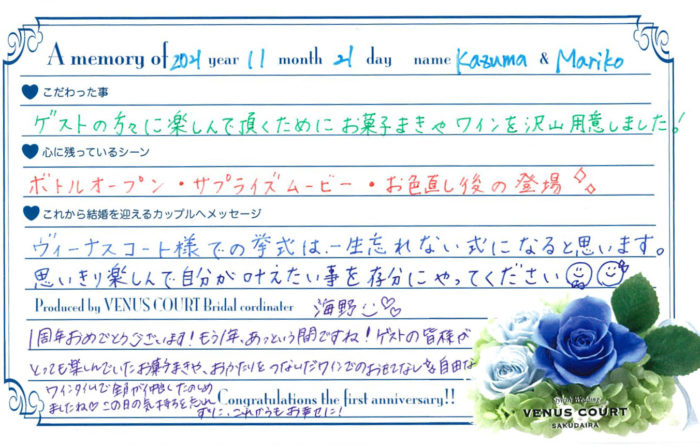 A memory of 2021 year 11 month 21 day name Kazuma & Mariko
こだわった事
ゲストの方々に楽しんで頂くためにお菓子まきやワインを沢山用意しました!
心に残っているシーン
ボトルオープン・サプライズムービー・お色直し後の登場
これから結婚を迎えるカップルへメッセージ
ヴィーナスコート様での挙式は、一生忘れない式になると思います。
思いきり楽しんで自分が叶えたい事を存分にやってください
Produced by VENUS COURT Bridal cordinater 海野
1周年おめでとうございます!もう1年、あっという間ですね!ゲストの皆様が
とっても楽しんでいたお菓子まきや、おかわりをつないだワインでのおもてなしも自由な
ワインタイムで全員が仲良したのしめ
ましたね♡この日の気持ちを忘れ
ずに、これからもお幸せに!
Congratulations the first anniversary!!
VENUS COURT
SAKUDAIRA